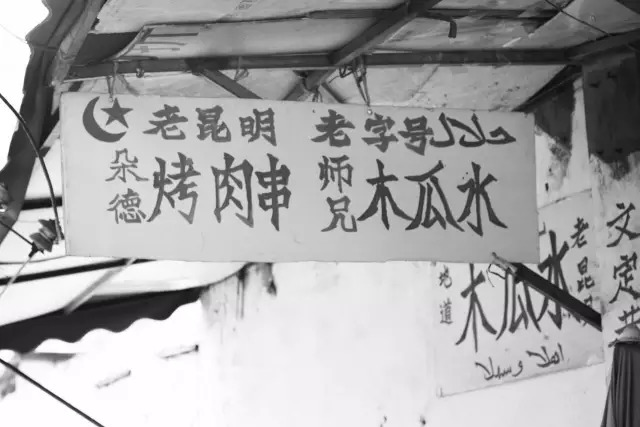 老昆明 老字号 حلال
朵德 烤肉串 师兄 木瓜水
老昆
地道 木瓜水
اهلا وسهلا
文定